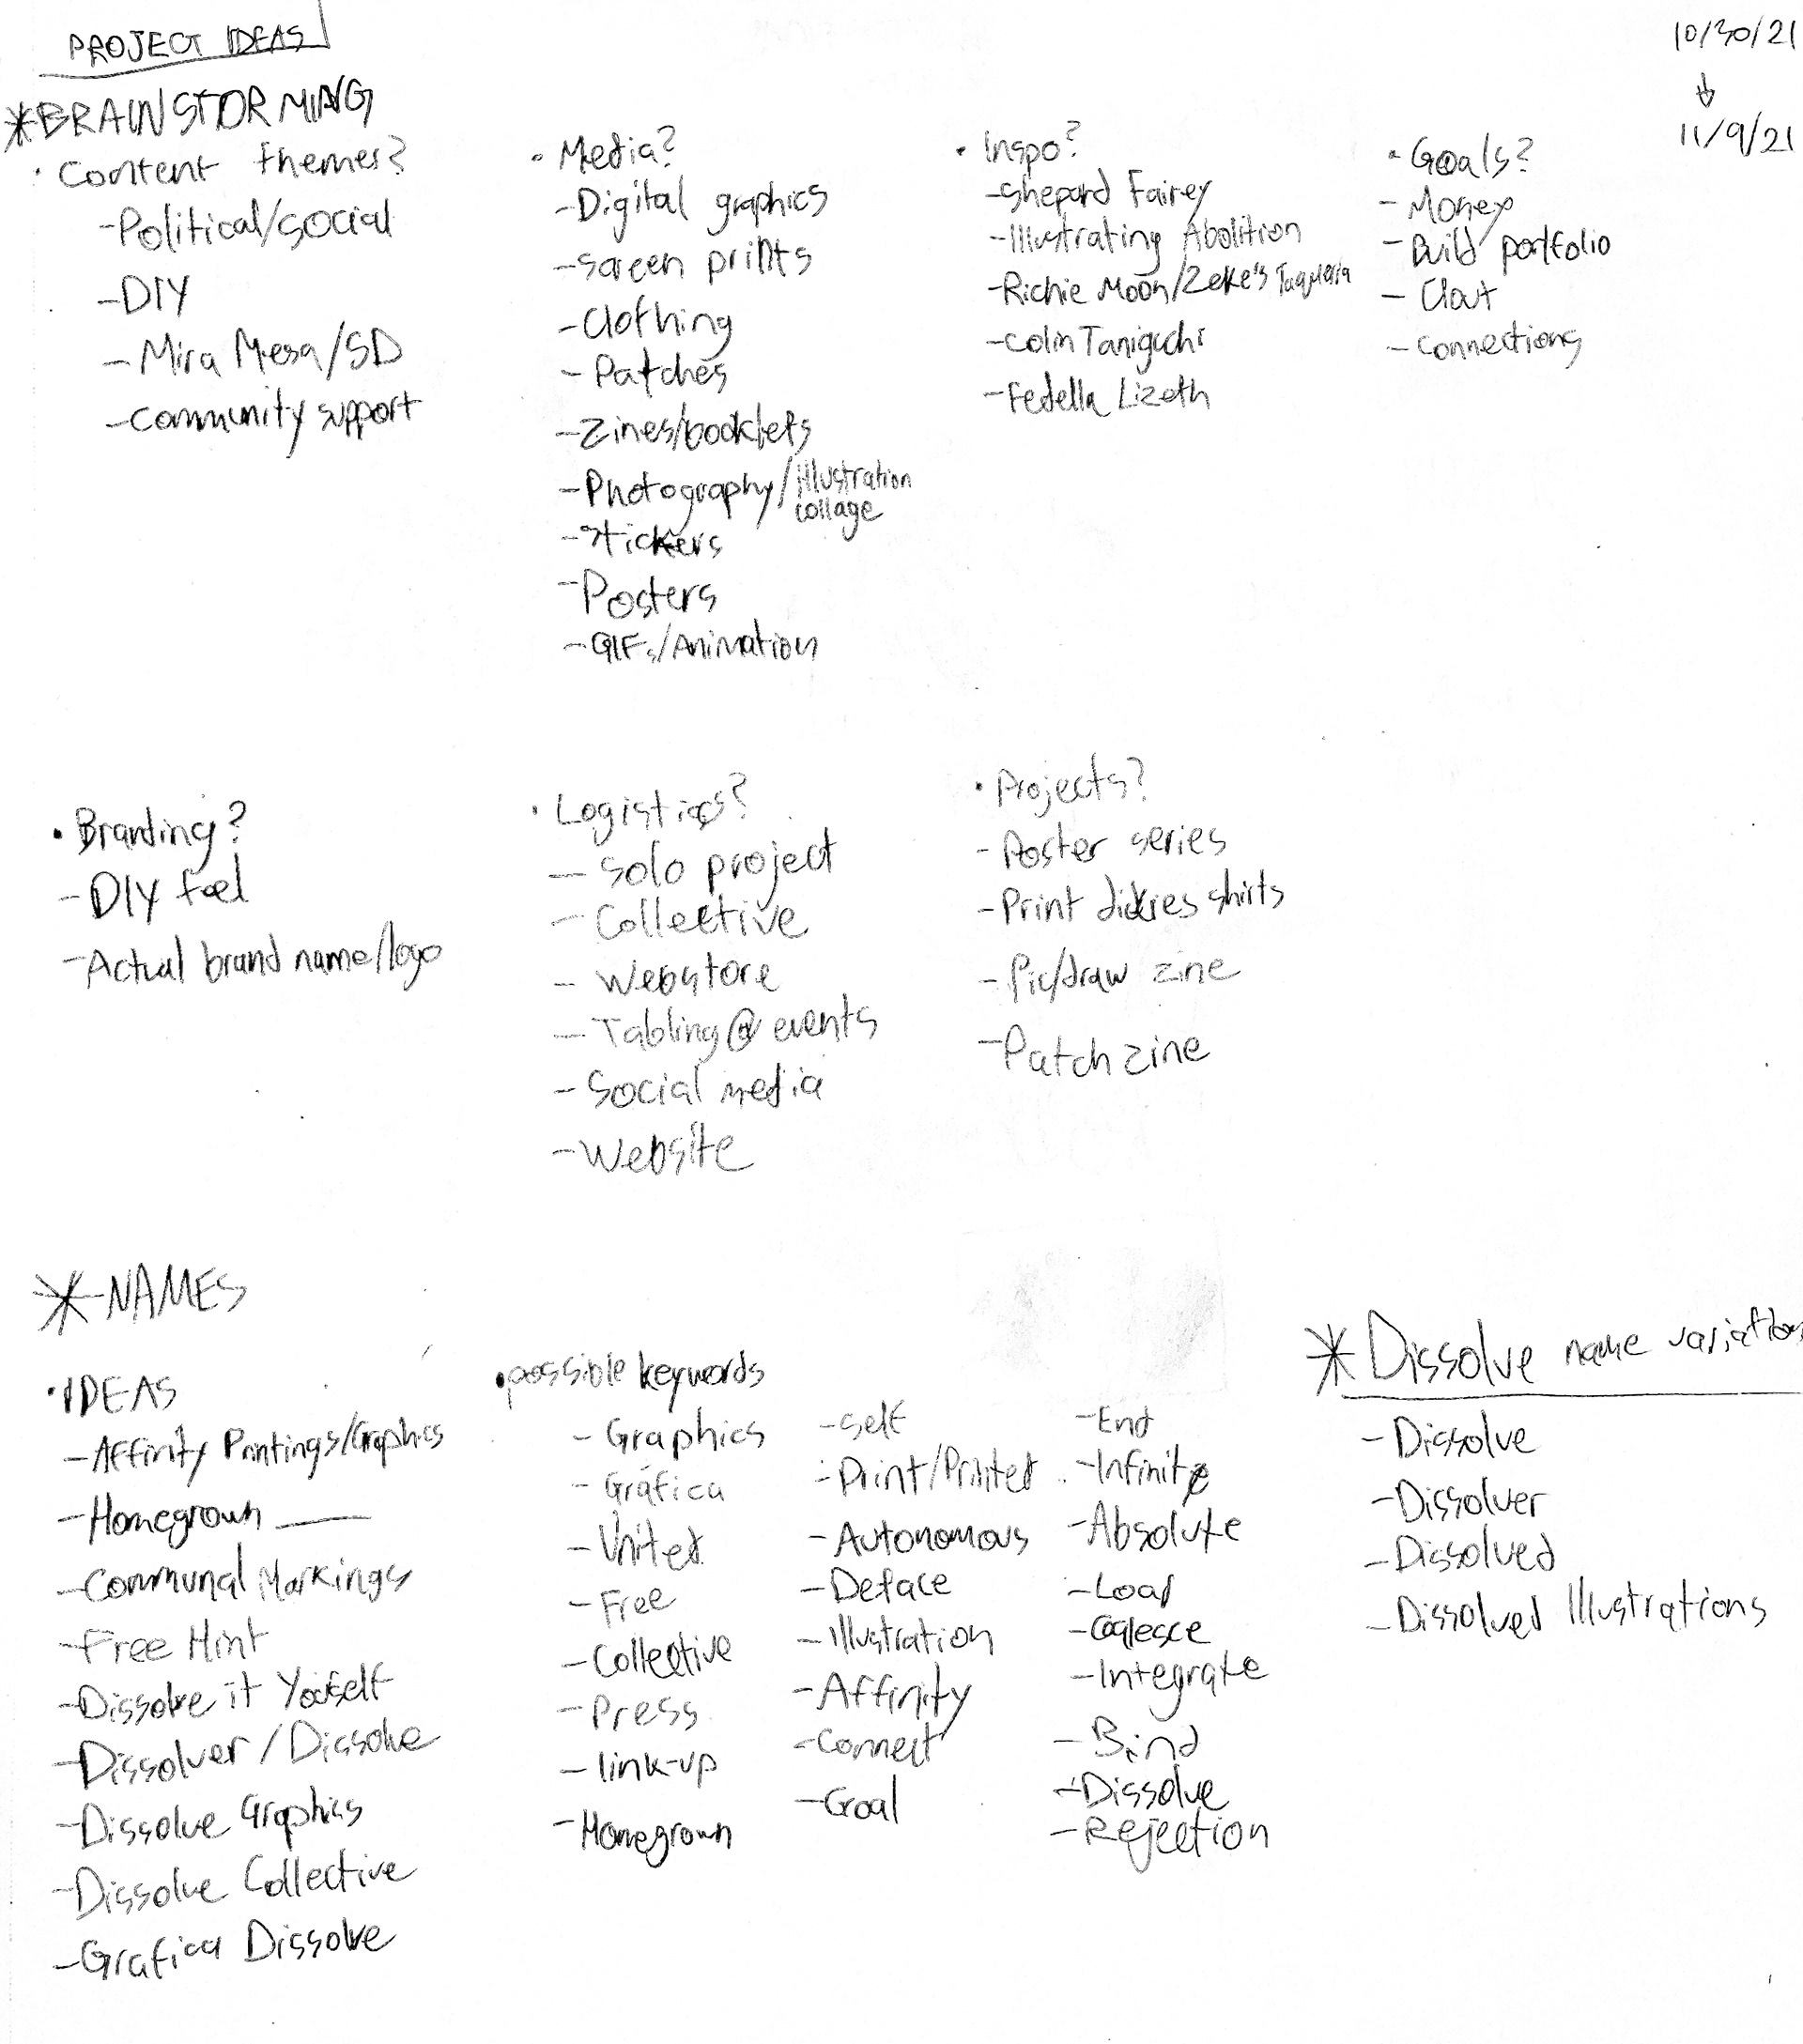 PROJECT IDEAS
10/30/21
↓
11/9/21
*BRAINSTORMING
• Content themes?
-Political/social
-DIY
-Mira Mesa/SD
-community support
• Media?
-Digital graphics
-screen prints
-Clothing
-Patches
-Zines/booklets
-Photography/illustration
collage
-stickers
-Posters
-GIFs/Animation
• Inspo?
-Shepard Fairey
-Illustrating Abolition
-Richie Moon/Zeke's Taqueria
-Colin Taniguchi
-Fedella Lizeth
• Goals?
-Money
-Build portfolio
-Clout
-Connections
• Branding?
-DIY feel
-Actual brand name/logo
• Logistics?
-Solo project
-Collective
-Webstore
-Tabling @ events
-Social media
-Website
• Projects?
-Poster series
-Print dickies shirts
-Pic/draw zine
-Patch zine
*-NAMES
• IDEAS
-Affinity Printings/Graphics
-Homegrown ___
-Communal Markings
-Free Hint
-Dissolve it Yourself
-Dissolver/Dissolve
-Dissolve Graphics
-Dissolve Collective
-Grafica Dissolve
• possible keywords
-Graphics
-Gráfica
-United
-Free
-Collective
-Press
-link-up
-Homegrown
-Self
-Print/Printed
-Autonomous
-Deface
-Illustration
-Affinity
-Connect
-Goal
-End
-Infinite
-Absolute
-Load
-Coalesce
-Integrate
-Bind
-Dissolve
-Rejection
* Dissolve name variations
-Dissolve
-Dissolver
-Dissolved
-Dissolved Illustrations